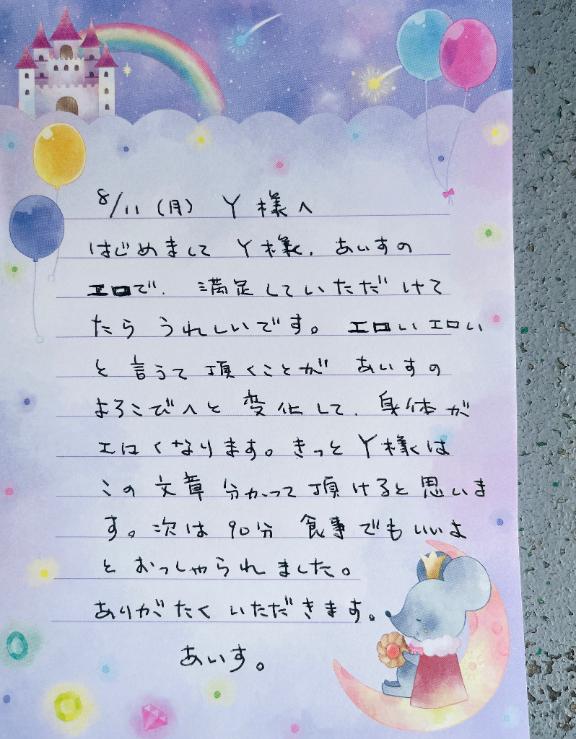 8/11(月) Y様へ
はじめまして Y様、あいすの
エロで、満足していただけて
たら うれしいです。エロい エロい
と 言うて 頂くことが あいすの
よろこびへと 変化して、身体が
エロくなります。きっと Y様は
この 文章 分かって 頂けると 思いま
す。次は 90分 食事でもいいよ
と おっしゃられました。
ありがたく いただきます。
あいす。